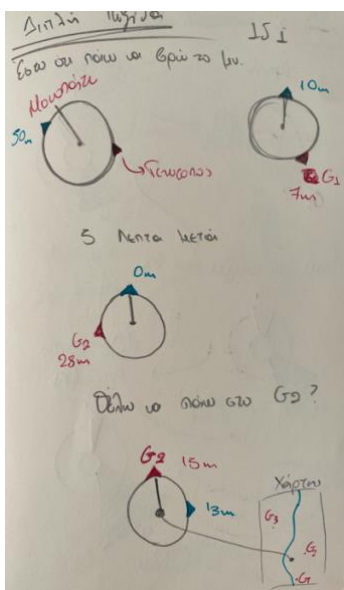 Διπλή πυξίδα
Έστω ότι πάω να βρω το μν.
Μονοπάτι
50m
10m
G1
7m
5 λεπτά μετά
0m
G2
28m
Θέλω να πάω στο G2?
G2 15m
13m
Χάρτης
G3